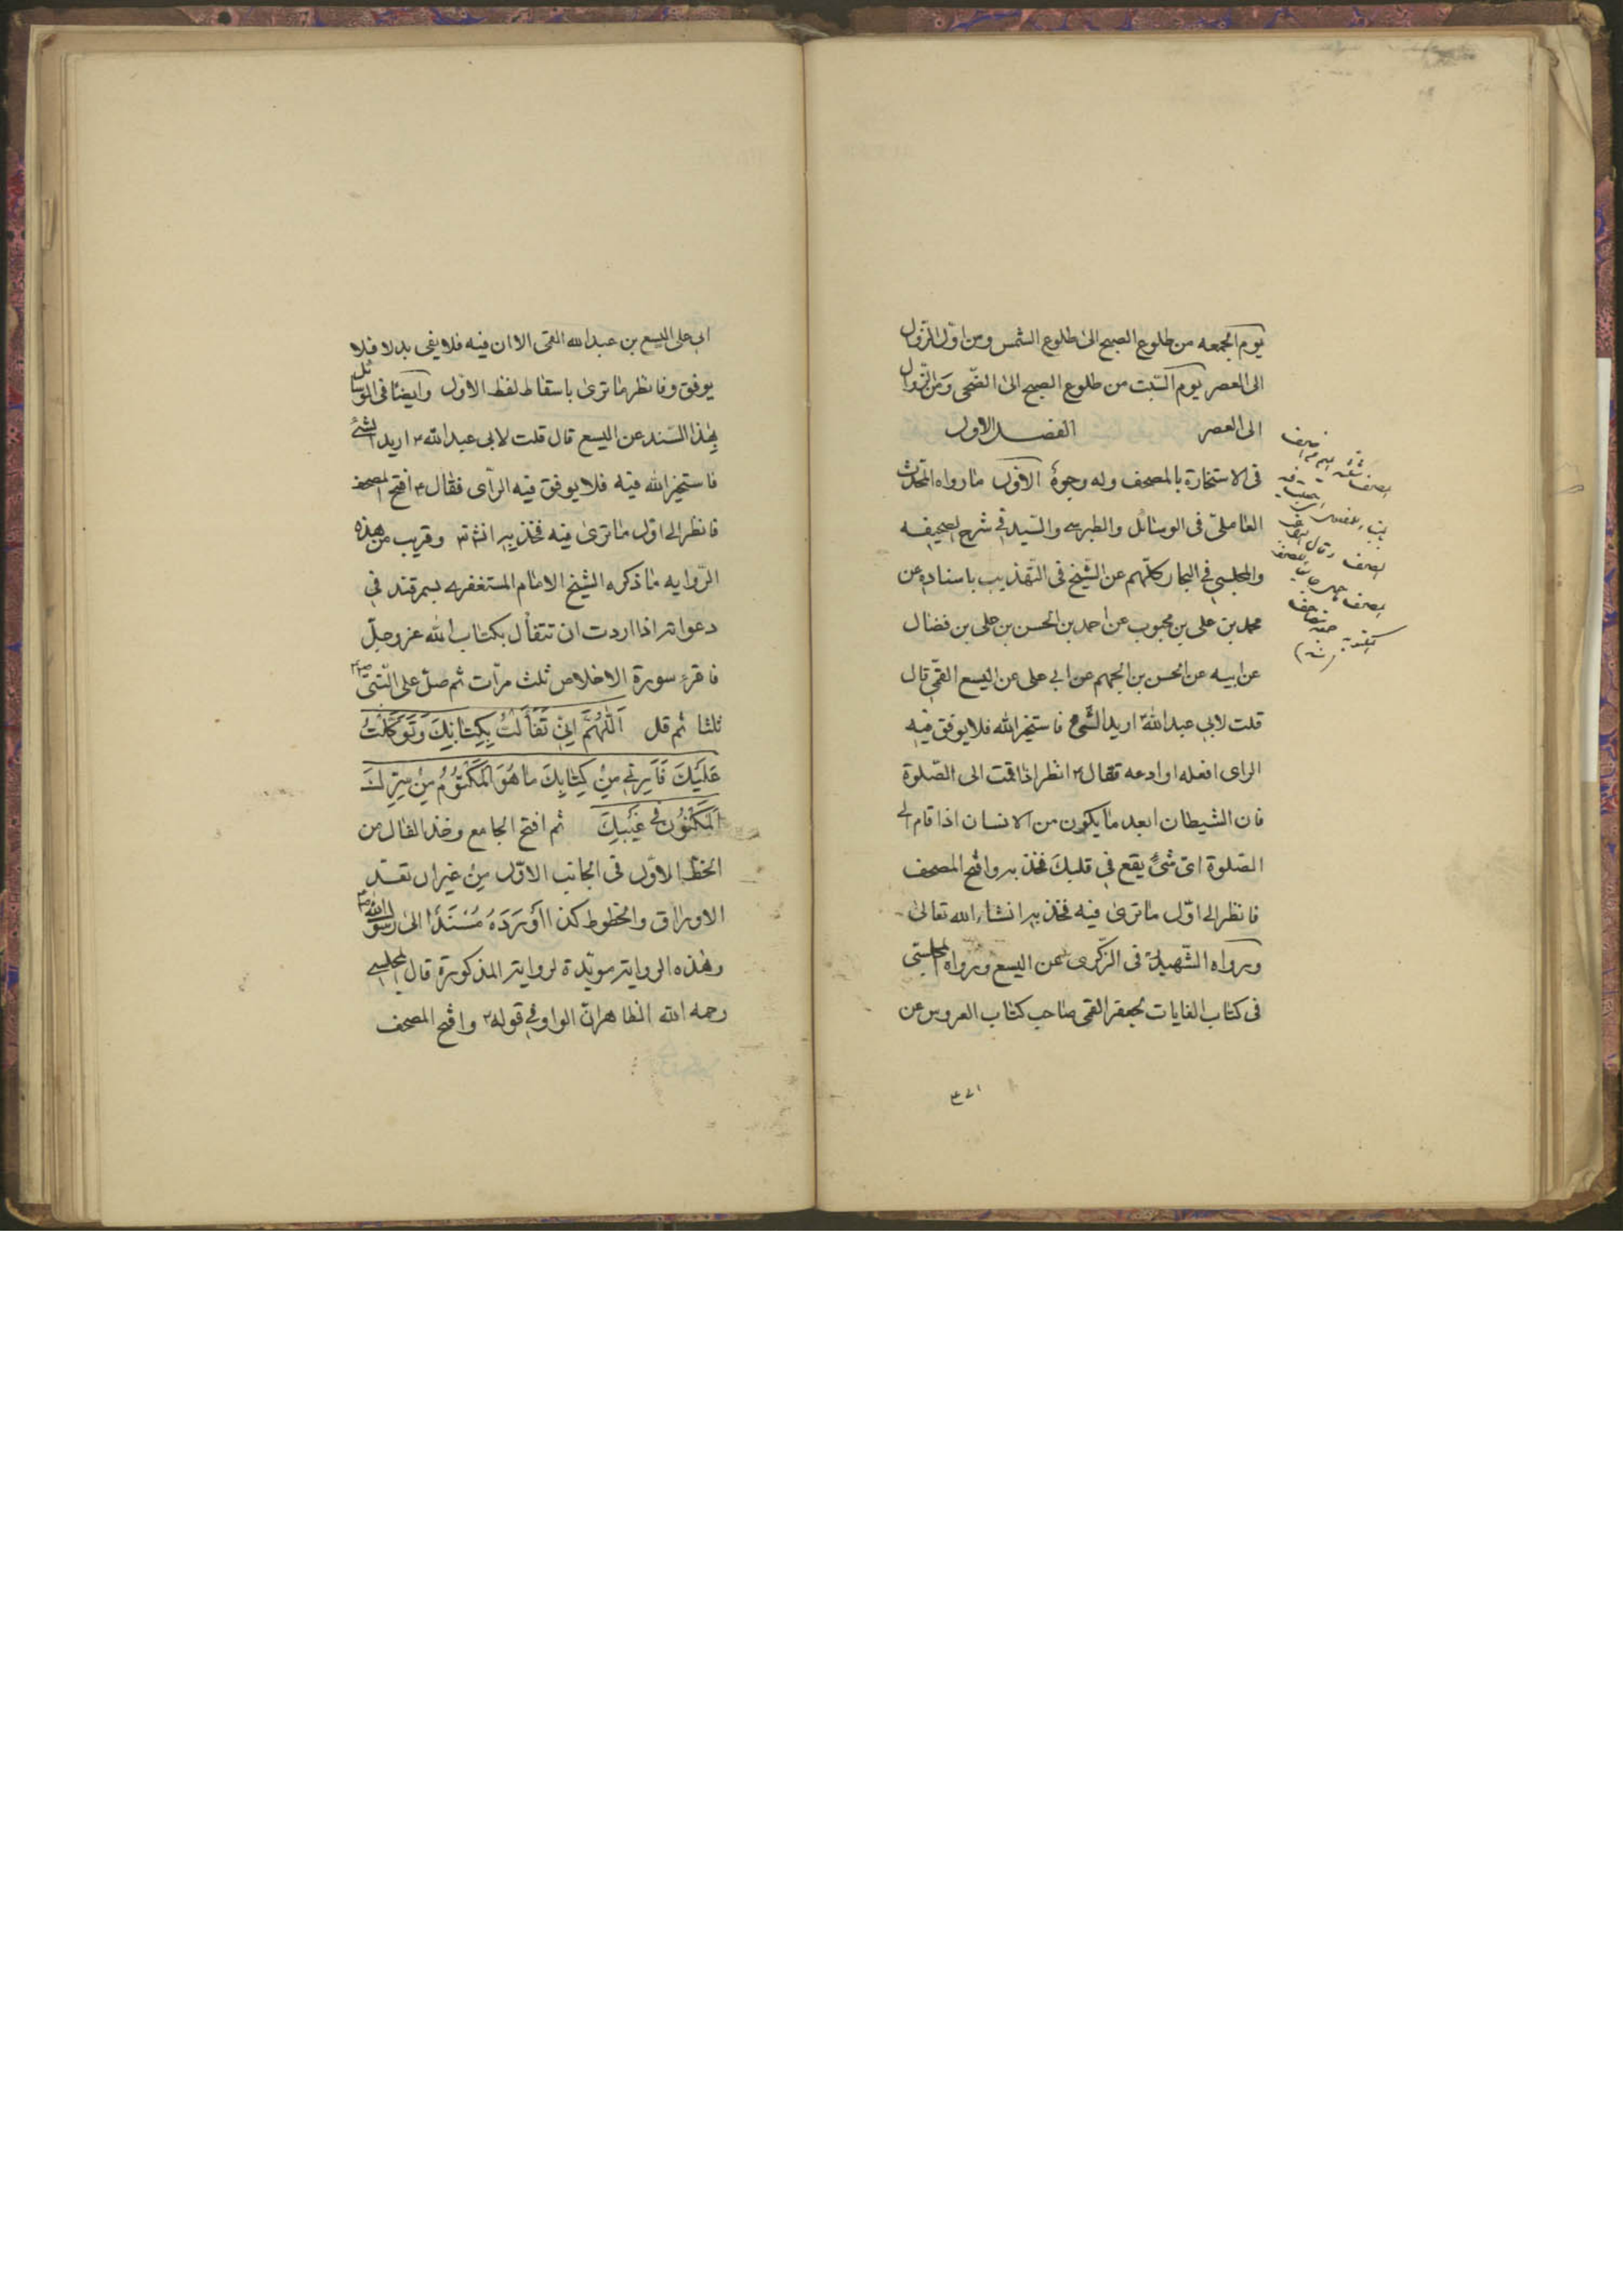 يوم الجمعه من طلوع الصبح الى طلوع الشمس ومن اول الزوال
الى العصر يوم السّبت من طلوع الصبح الى الضّحى ومن الزوال
الى العصر الفصل الاول
فى الاستخارة بالمصحف وله وجوهٌ الاوّل ما رواه المحّدث
العاملىّ فى الوسائل والطبرسى والسّيد فى شرح الصحيفه
والمجلسى فى البحار كلّهم عن الشّيخ فى التّهذيب باسناده عن
محمد بن على بن محبوب عن احمد بن الحسن بن على بن فضال
عن ابيه عن الحسن بن الجهم عن ابى على عن اليسع القمّى قال
قلت لابى عبد اللهؑ اريد الشئ فاستخير الله فلا يوفق فيه
الراى افعله او ادعه فقال؏ انظر اذا قمت الى الصّلوة
فان الشيطان ابعد ما يكون من الانسان اذا قام الى
الصّلوة اىّ شئٌ يقع فى قلبك فخذ به وافتح المصحف
فانظر الى اوّل ما ترى فيه فخذ به انشاء الله تعالى
ورواه الشّهيد فى الذّكرى عن اليسع ورواه المجلسىّ
فى كتاب الغايات لجعفر القمى صاحب كتاب العروس عن
ابى على اليسع بن عبد الله القمى الا ان فيه فلا يفى بدلا فلا
يوفق وفانظر ما ترى باسقاط لفظ الاوّل وايضًا فى الوسائل
بهٰذا السّند عن اليسع قال قلت لابى عبد الله؏ اريد الشئ
فاستخير الله فيه فلا يوفق فيه الرّاى فقال؏ افتح المصحف
فانظر الى اوّل ما ترى فيه فخذ به انشاء الله وقريب من هذه
الرّوايه ما ذكره الشيخ الامام المستغفرى بسمرقند فى
دعواته اذا اردت ان تتفأل بكتاب الله عز وجلّ
فاقرء سورة الاخلاص ثلث مرّات ثم صلّ على النّبىّ ص
ثلثا ثم قل اَللّٰهُمَّ اِنّى تَفَأَلْتُ بِكِتٰابِكَ وَتَوَكَّلْتُ
عَلَيْكَ فَاَرِنى مِنْ كِتٰابِكَ مٰا هُوَ الْمَكْتُوُمُ مِنْ سِرِّكَ
الْمَكْنُوُنِ فى غَيْبِكَ ثم افتح الجامع وخذ الفال من
الخطّ الاوّل فى الجانب الاوّل مِنْ غير ان تعّد
الاوراق والخطوط كذا اَوْرَدَهُ مُسْنَدًا الى رسول الله ص
وهٰذه الرواية مويّدة لرواية المذكورة قال المجلسى
رحمه الله الظاهر انّ الواو فى قوله؏ وافتح المصحف